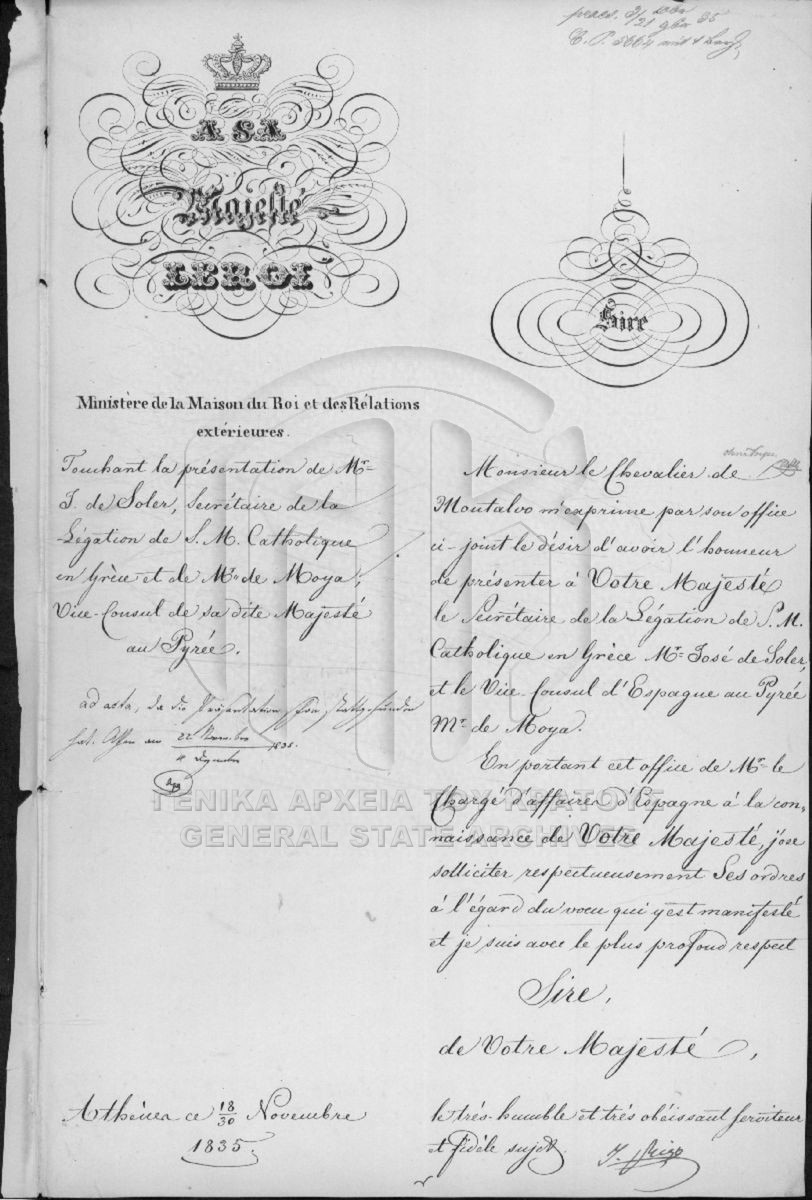 A SA
Majesté
LE ROI
Sire
Ministère de la Maison du Roi et des Rélations
extérieures.
Touchant la présentation de Mr.
J. de Soler, Secrétaire de la
Légation de S. M. Catholique
en Grèce et de Mr. de Moya,
Vice-Consul de sa dite Majesté
au Pyrée.
ad acta, da die Präsentation schon stattgefunden
hat. Athen am 22 November
1835.
4 Dezember
Monsieur le Chevalier de
Montalvo m'exprime par son office
ci-joint le désir d'avoir l'honneur
de présenter à Votre Majesté
le Secrétaire de la Légation de S. M.
Catholique en Grèce Mr. José de Soler,
et le Vice-Consul d'Espagne au Pyrée
Mr. de Moya.
En portant cet office de Mr. le
Chargé d'affaires d'Espagne à la con-
naissance de Votre Majesté, j'ose
solliciter respectueusement Ses ordres
à l'égard du voeu qui y est manifesté
et je suis avec le plus profond respect
Sire,
de Votre Majesté,
le très-humble et très obéissant serviteur
et fidèle sujet
J. Rizo
Athènes ce 18/30 Novembre
1835.
ΓΕΝΙΚΑ ΑΡΧΕΙΑ ΤΟΥ ΚΡΑΤΟΥΣ
GENERAL STATE ARCHIVES